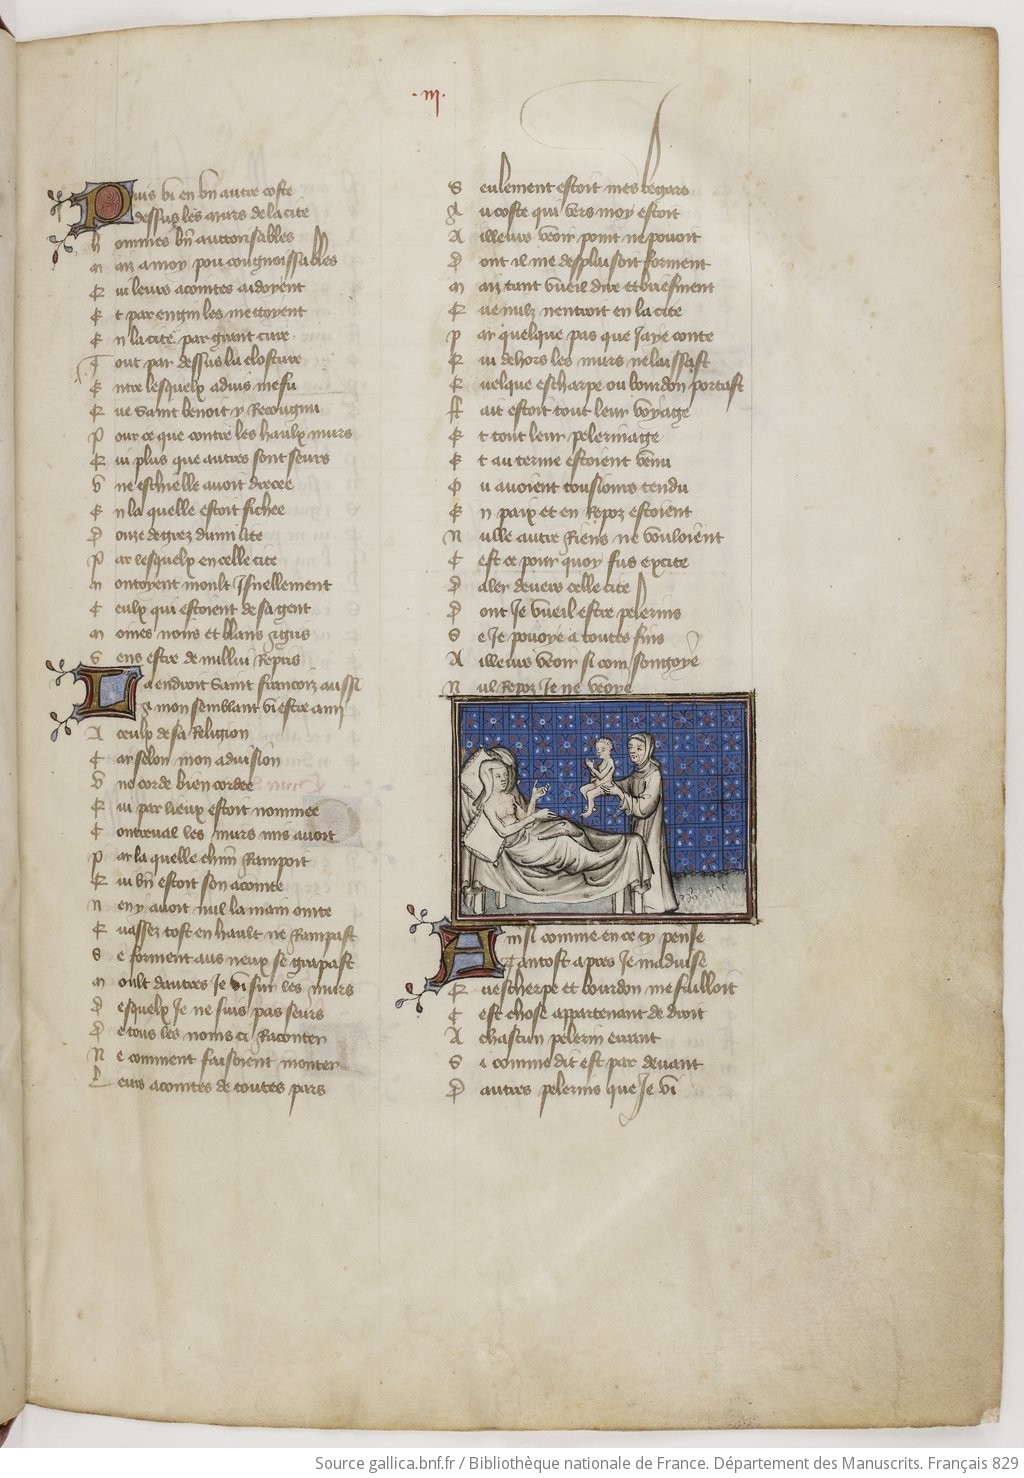 .III.
Puis vi en un autre coste
dessus les murs de la cite
Hommes bn auctorisables
Maiz a moy pou congnoissables
Qui leurs acointes aidoyent
Et par engin les mettoyent
En la cite par grant cure
Tout par dessus la closture
Entre lesquelx aduis me fu
Que Saint benoit y Recongnu
Pour ce que contre les haulx murs
Qui plus que autres sont seurs
Vne eschielle auoit drecee
En la quelle estoit fichee
Donze degrez dumilite
Par lesquelx en celle cite
Montoyent moult Isnellement
Ceulx qui estoient de sa gent
Moines noirs et blans et gris
Sens estre de nullui Repris
La endroit Saint francoiz aussi
A mon semblant vi estre ami
A ceulx de sa Religion
Car selon mon aduision
Vne corde bien cordee
Qui par lieux estoit nommee
Contreual les murs mis auoit
Par la quelle chun Rampoit
Qui vn estoit son acointe
Nen y auoit nul la main ointe
Quassez tost en hault ne Rampast
Se forment aus neux se grapast
Moult dautres Je vi sur les murs
Desquelx Je ne suis pas seurs
De tous les noms ci Raconter
Ne comment faisoient monter
Leurs acointes de toutes pars
Seulement estoit mes Regars
Au coste qui vers moy estoit
Ailleurs veoir point ne pouoit
Dont il me desplaisoit forment
Maiz tant vueil dire et briefment
Que nulz nentroit en la cite
Par quelque pas que Jaye conte
Qui dehors les murs ne laissast
Quelque escharpe ou bourdon portast
Fait estoit tout leur voyage
Et tout leur pelerinage
Et au terme estoient venu
Ou auoient tousiours tendu
En paix et en Repoz estoient
Nulle autre Riens ne vouloient
Cest ce pour quoy fus excite
Daler deuers celle cite
Dont Je vueil estre pelerins
Se Je pouoye a toutes fins
Ailleurs veoir si com songoye
Nul Repoz Je ne veoye
Ainsi comme en ce cy pense
Tantost apres Je maduise
Quescherpe et bourdon me failloit
Cest chose appartenant de droit
A chascun pelerin errant
Si comme dit est par deuant
Dautres pelerins que Je vi
Source gallica.bnf.fr / Bibliothèque nationale de France. Département des Manuscrits. Français 829